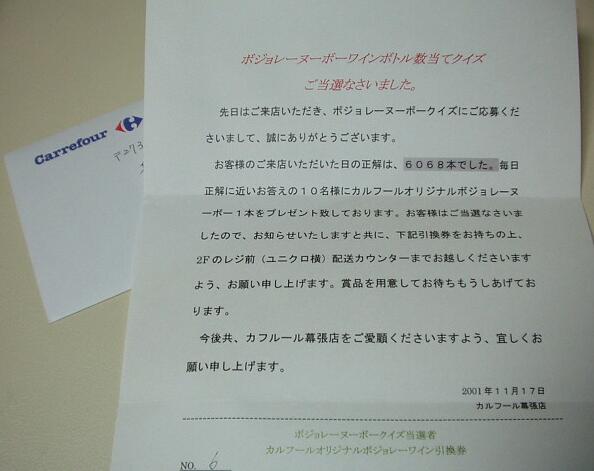 ボジョレーヌーボーワインボトル数当てクイズ
ご当選なさいました。
先日はご来店いただき、ボジョレーヌーボークイズにご応募くだ
さいまして、誠にありがとうございます。
お客様のご来店いただいた日の正解は、６０６８本でした。毎日
正解に近いお答えの１０名様にカルフールオリジナルボジョレーヌ
ーボー１本をプレゼント致しております。お客様はご当選なさいま
したので、お知らせいたしますと共に、下記引換券をお持ちの上、
２Fのレジ前（ユニクロ横）配送カウンターまでお越しくださいます
よう、お願い申し上げます。賞品を用意してお待ちもうしあげてお
ります。
今後共、カフルール幕張店をご愛顧くださいますよう、宜しくお
願い申し上げます。
2001年１１月１７日
カルフール幕張店
ボジョレーヌーボークイズ当選者
カルフールオリジナルボジョレーワイン引換券
NO. 6
Carrefour
〒273